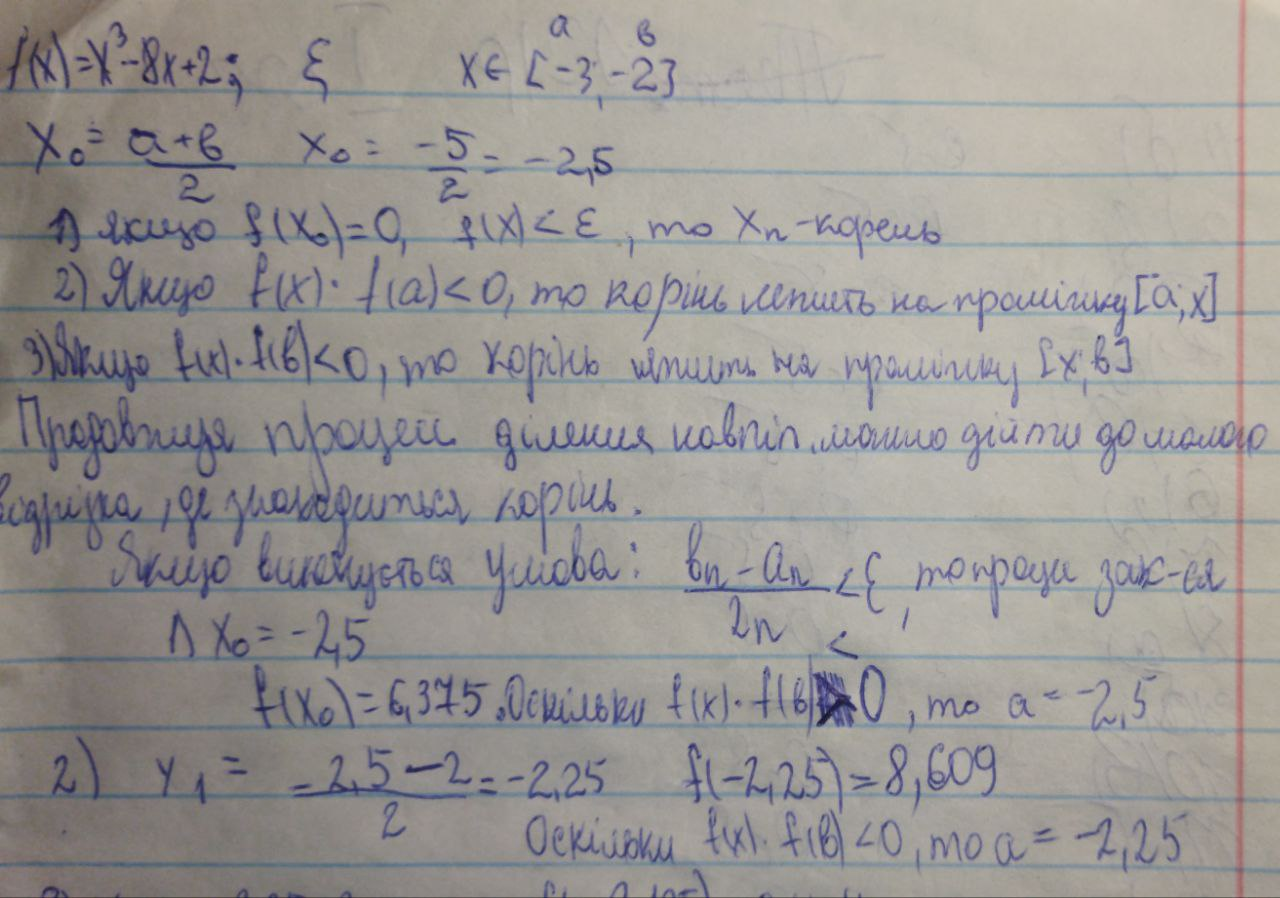 a в
f(x)=x³-8x+2; ξ x∈[-3;-2]
x₀ = a+в/2 x₀ = -5/2 = -2,5
1) якщо f(x₀)=0, f(x)<ε, то xₙ-корень
2) Якщо f(x)·f(a)<0, то корінь лежить на проміжку [a;x]
3) Якщо f(x)·f(в)<0, то корінь лежить на проміжку [x;в]
Продовжуя процес ділення навпіл, можно дійти до малого
відрізка, де знаходиться корінь.
Якщо виконується умова: вₙ-aₙ/2n <ξ, то процес зак-ся
1) x₀=-2,5
f(x₀)=6,375. Оскільки f(x)·f(в) < 0, то a=-2,5
2) x₁ = -2,5-2/2 = -2,25 f(-2,25)=8,609
Оскільки f(x)·f(в)<0, то a=-2,25